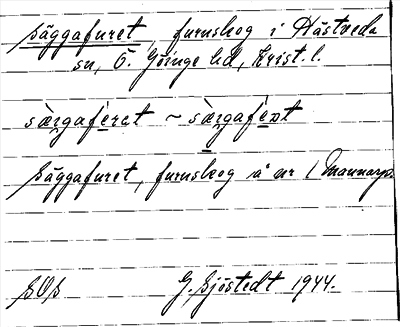 Säggafuret, furuskog i Hästveda
sn, Ö. Göinge hd, Krist. l.
sæ̀rgafɛret ~ sæ̀rgafɛrət
Säggafuret, furuskog å nr 1 Mannarp.
SOS G. Sjöstedt 1944.